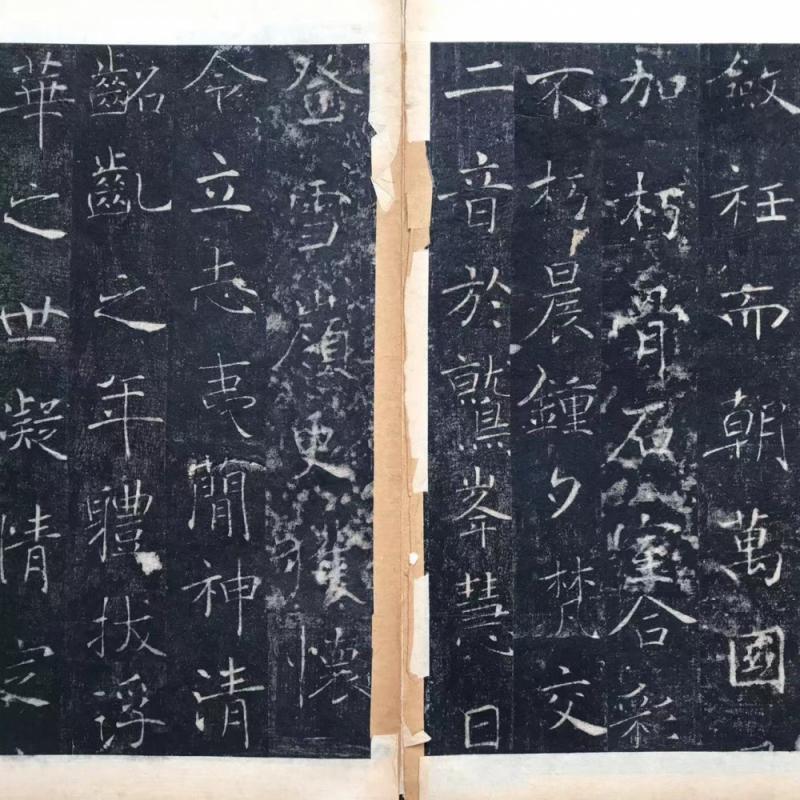 斂衽而朝萬國
加朽骨石室合彩
不朽晨鍾夕梵交
二音於鷲峯慧日
登雪嶺更獲懷
令立志夷簡神清
齠齓之年體拔浮
華之世凝情定